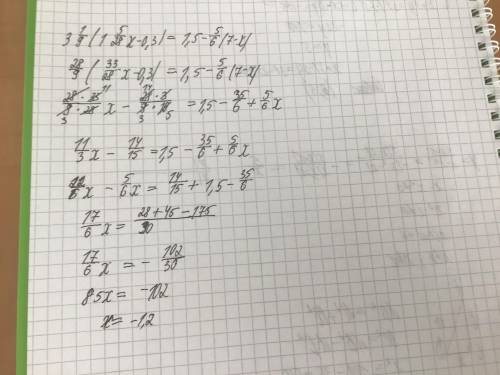 3 1/9 (1 5/28 x - 0,3) = 1,5 - 5/6 (7-x)
28/9 (33/28 x - 0,3) = 1,5 - 5/6 (7-x)
28·33/9·28 x - 28·3/9·10 = 1,5 - 35/6 + 5/6 x
11/3 x - 14/15 = 1,5 - 35/6 + 5/6 x
22/6 x - 5/6 x = 14/15 + 1,5 - 35/6
17/6 x = 28+45-175/30
17/6 x = - 102/30
85x = -102
x = -1,2